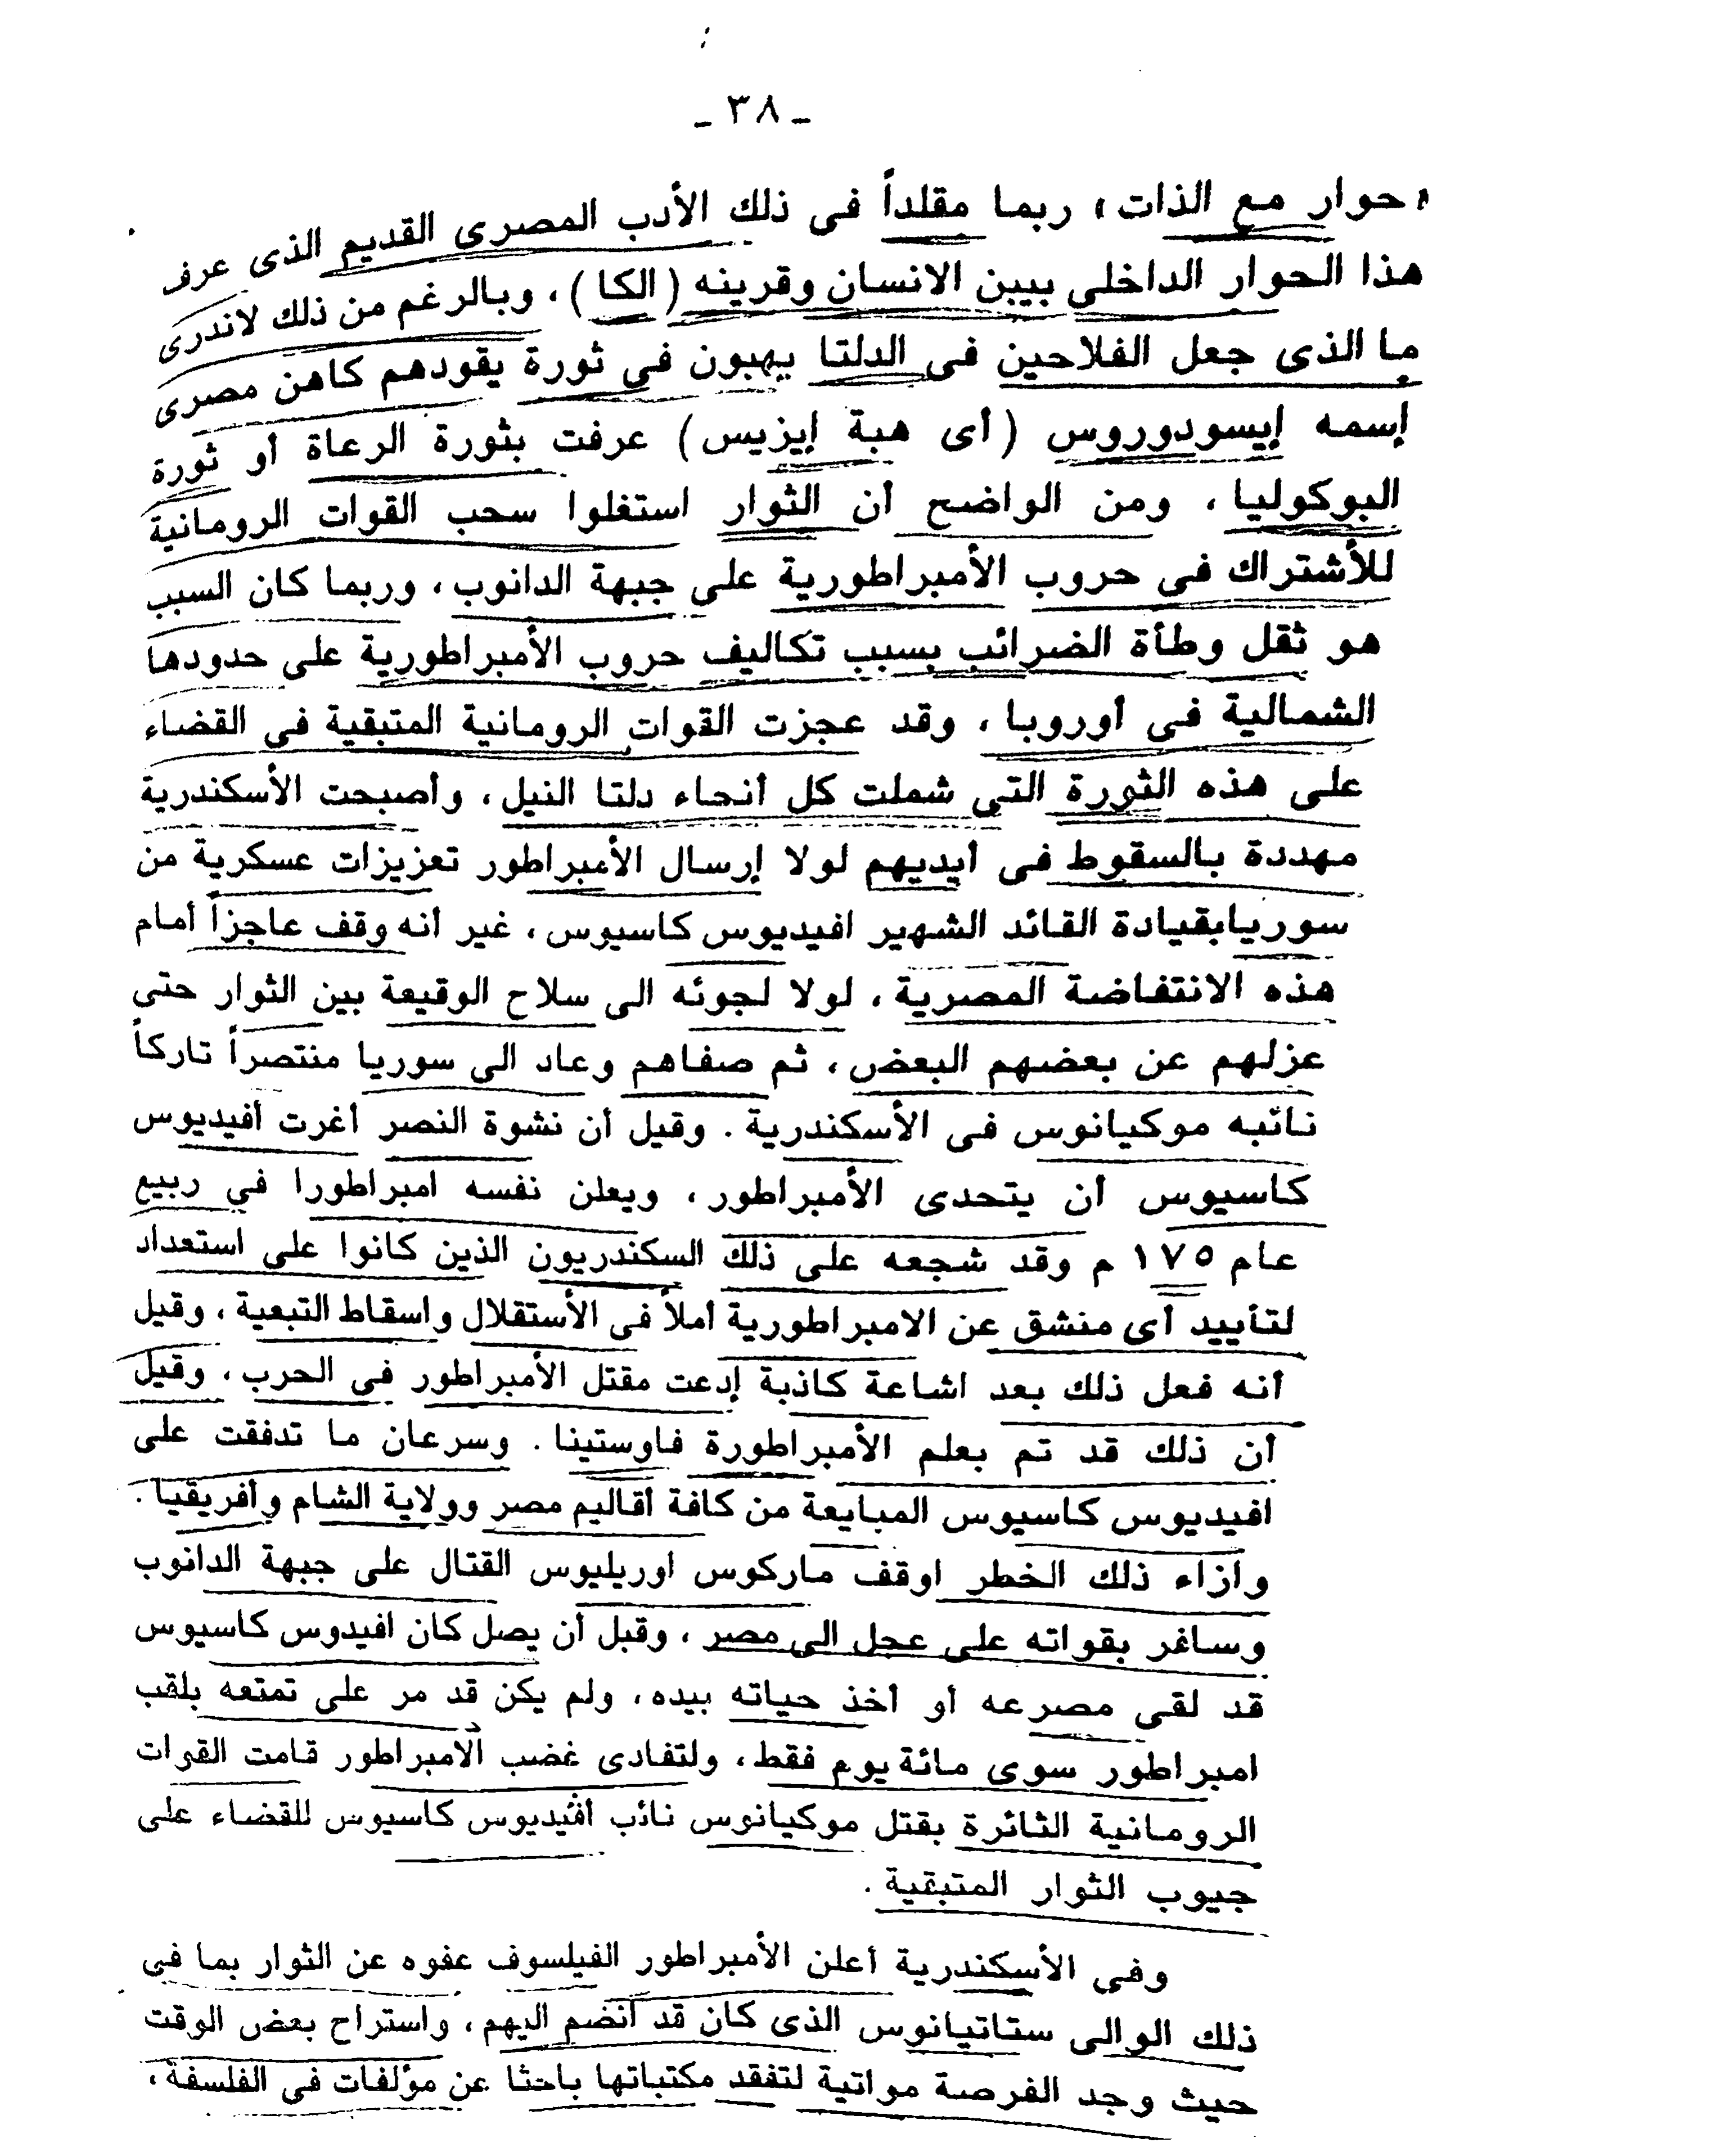 ـ ٣٨ ـ
« حوار مع الذات » ربما مقلداً فى ذلك الأدب المصرى القديم الذى عرف
هذا الحوار الداخلى بيبن الانسان وقرينه ( الكا ) ، وبالرغم من ذلك لاندرى
ما الذى جعل الفلاحين فى الدلتا يهبون فى ثورة يقودهم كاهن مصرى
إسمه إيسودوروس ( أى هبة إيزيس ) عرفت بثورة الرعاة أو ثورة
البوكوليا ، ومن الواضح أن الثوار استغلوا سحب القوات الرومانية
للأشتراك فى حروب الأمبراطورية على جبهة الدانوب ، وربما كان السبب
هو ثقل وطأة الضرائب بسبب تكاليف حروب الأمبراطورية على حدودها
الشمالية فى أوروبا ، وقد عجزت القوات الرومانية المتبقية فى القضاء
على هذه الثورة التى شملت كل أنحاء دلتا النيل ، وأصبحت الأسكندرية
مهددة بالسقوط فى أيديهم لولا إرسال الأمبراطور تعزيزات عسكرية من
سوريابقيادة القائد الشهير افيديوس كاسيوس ، غير أنه وقف عاجزاً أمام
هذه الانتفاضة المصرية ، لولا لجوئه الى سلاح الوقيعة بين الثوار حتى
عزلهم عن بعضهم البعض ، ثم صفاهم وعاد الى سوريا منتصراً تاركاً
نائبه موكيانوس فى الأسكندرية . وقيل أن نشوة النصر أغرت أفيديوس
كاسيوس أن يتحدى الأمبراطور ، ويعلن نفسه امبراطورا فى ربيع
عام ١٧٥ م وقد شجعه على ذلك السكندريون الذين كانوا على استعداد
لتأييد أى منشق عن الامبراطورية أملاً فى الأستقلال واسقاط التبعية ، وقيل
أنه فعل ذلك بعد اشاعة كاذبة إدعت مقتل الأمبراطور فى الحرب ، وقيل
أن ذلك قد تم بعلم الأمبراطورة فاوستينا . وسرعان ما تدفقت على
افيديوس كاسيوس المبايعة من كافة أقاليم مصر وولاية الشام وأفريقيا .
وأزاء ذلك الخطر اوقف ماركوس اوريليوس القتال على جبهة الدانوب
وسافر بقواته على عجل الى مصر ، وقبل أن يصل كان افيدوس كاسيوس
قد لقى مصرعه أو أخذ حياته بيده ، ولم يكن قد مر على تمتعه بلقب
امبراطور سوى مائة يوم فقط ، ولتفادى غضب الامبراطور قامت القوات
الرومانية الثائرة بقتل موكيانوس نائب أفيديوس كاسيوس للقضاء على
جيوب الثوار المتبقية .
وفى الأسكندرية أعلن الأمبراطور الفيلسوف عفوه عن الثوار بما فى
ذلك الوالى ستاتيانوس الذى كان قد أنضم اليهم ، واستراح بعض الوقت
حيث وجد الفرصة مواتية لتفقد مكتباتها باحثا عن مؤلفات فى الفلسفة ،